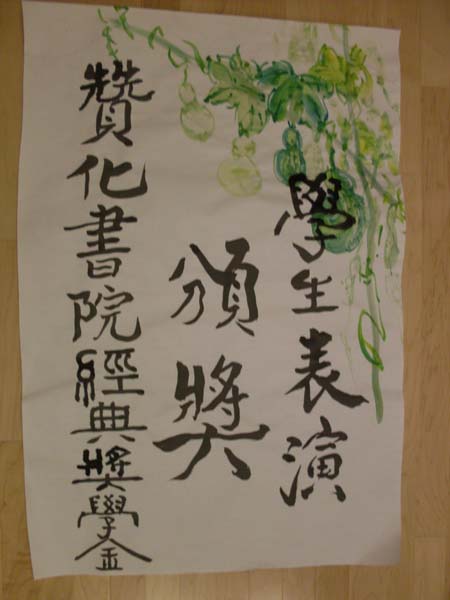 學生表演
頒獎
贊化書院經典獎學金